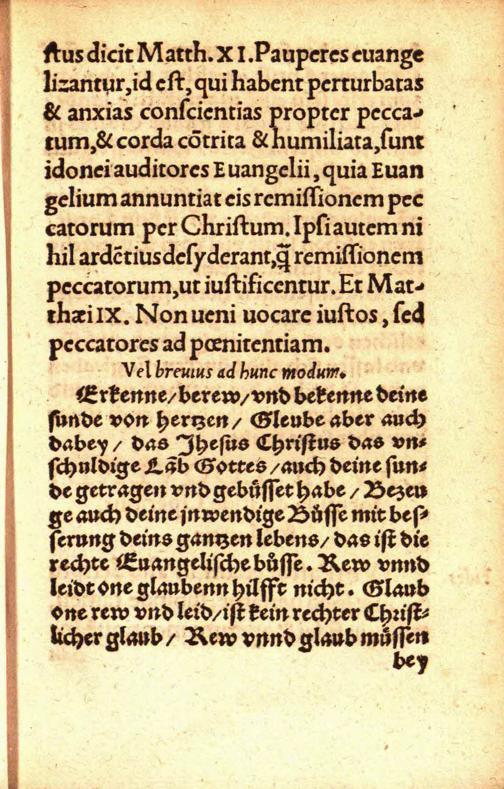 ſtus dicit Matth. XI. Pauperes euange
lizantur, id eſt, qui habent perturbatas
& anxias conſcientias propter pecca-
tum, & corda cõtrita & humiliata, ſunt
idonei auditores Euangelii, quia Euan
gelium annuntiat eis remiſſionem pec
catorum per Chriſtum. Ipſi autem ni
hil ardẽtius deſyderant, q̃ remiſſionem
peccatorum, ut iuſtificentur. Et Mat-
thæi IX. Non ueni uocare iuſtos, ſed
peccatores ad pœnitentiam.
Vel breuius ad hunc modum.
Erkenne/ berew/ vnd bekenne deine
ſunde von hertzen/ Gleube aber auch
dabey/ das Jheſus Chriſtus das vn-
ſchuldige Lãb Gottes/ auch deine ſun-
de getragen vnd gebůſſet habe/ Bezeu
ge auch deine jnwendige Bůſſe mit beſ-
ſerung deins gantzen lebens/ das iſt die
rechte Euangeliſche bůſſe. Rew vnnd
leidt one glaubenn hilfft nicht. Glaub
one rew vnd leid/ iſt kein rechter Chriſt-
licher glaub/ Rew vnnd glaub můſſen
bey